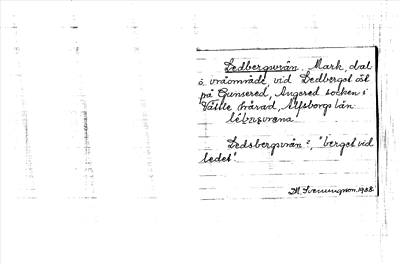 Ledbergsvrån. Mark, dal
o. vråområde vid Ledberget öst
på Gunsered, Angered socken i
Vättle härad, Älfsborgs län
Ledsbergsvrån?, "berget vid
ledet".
M. Svenungson. 1938.